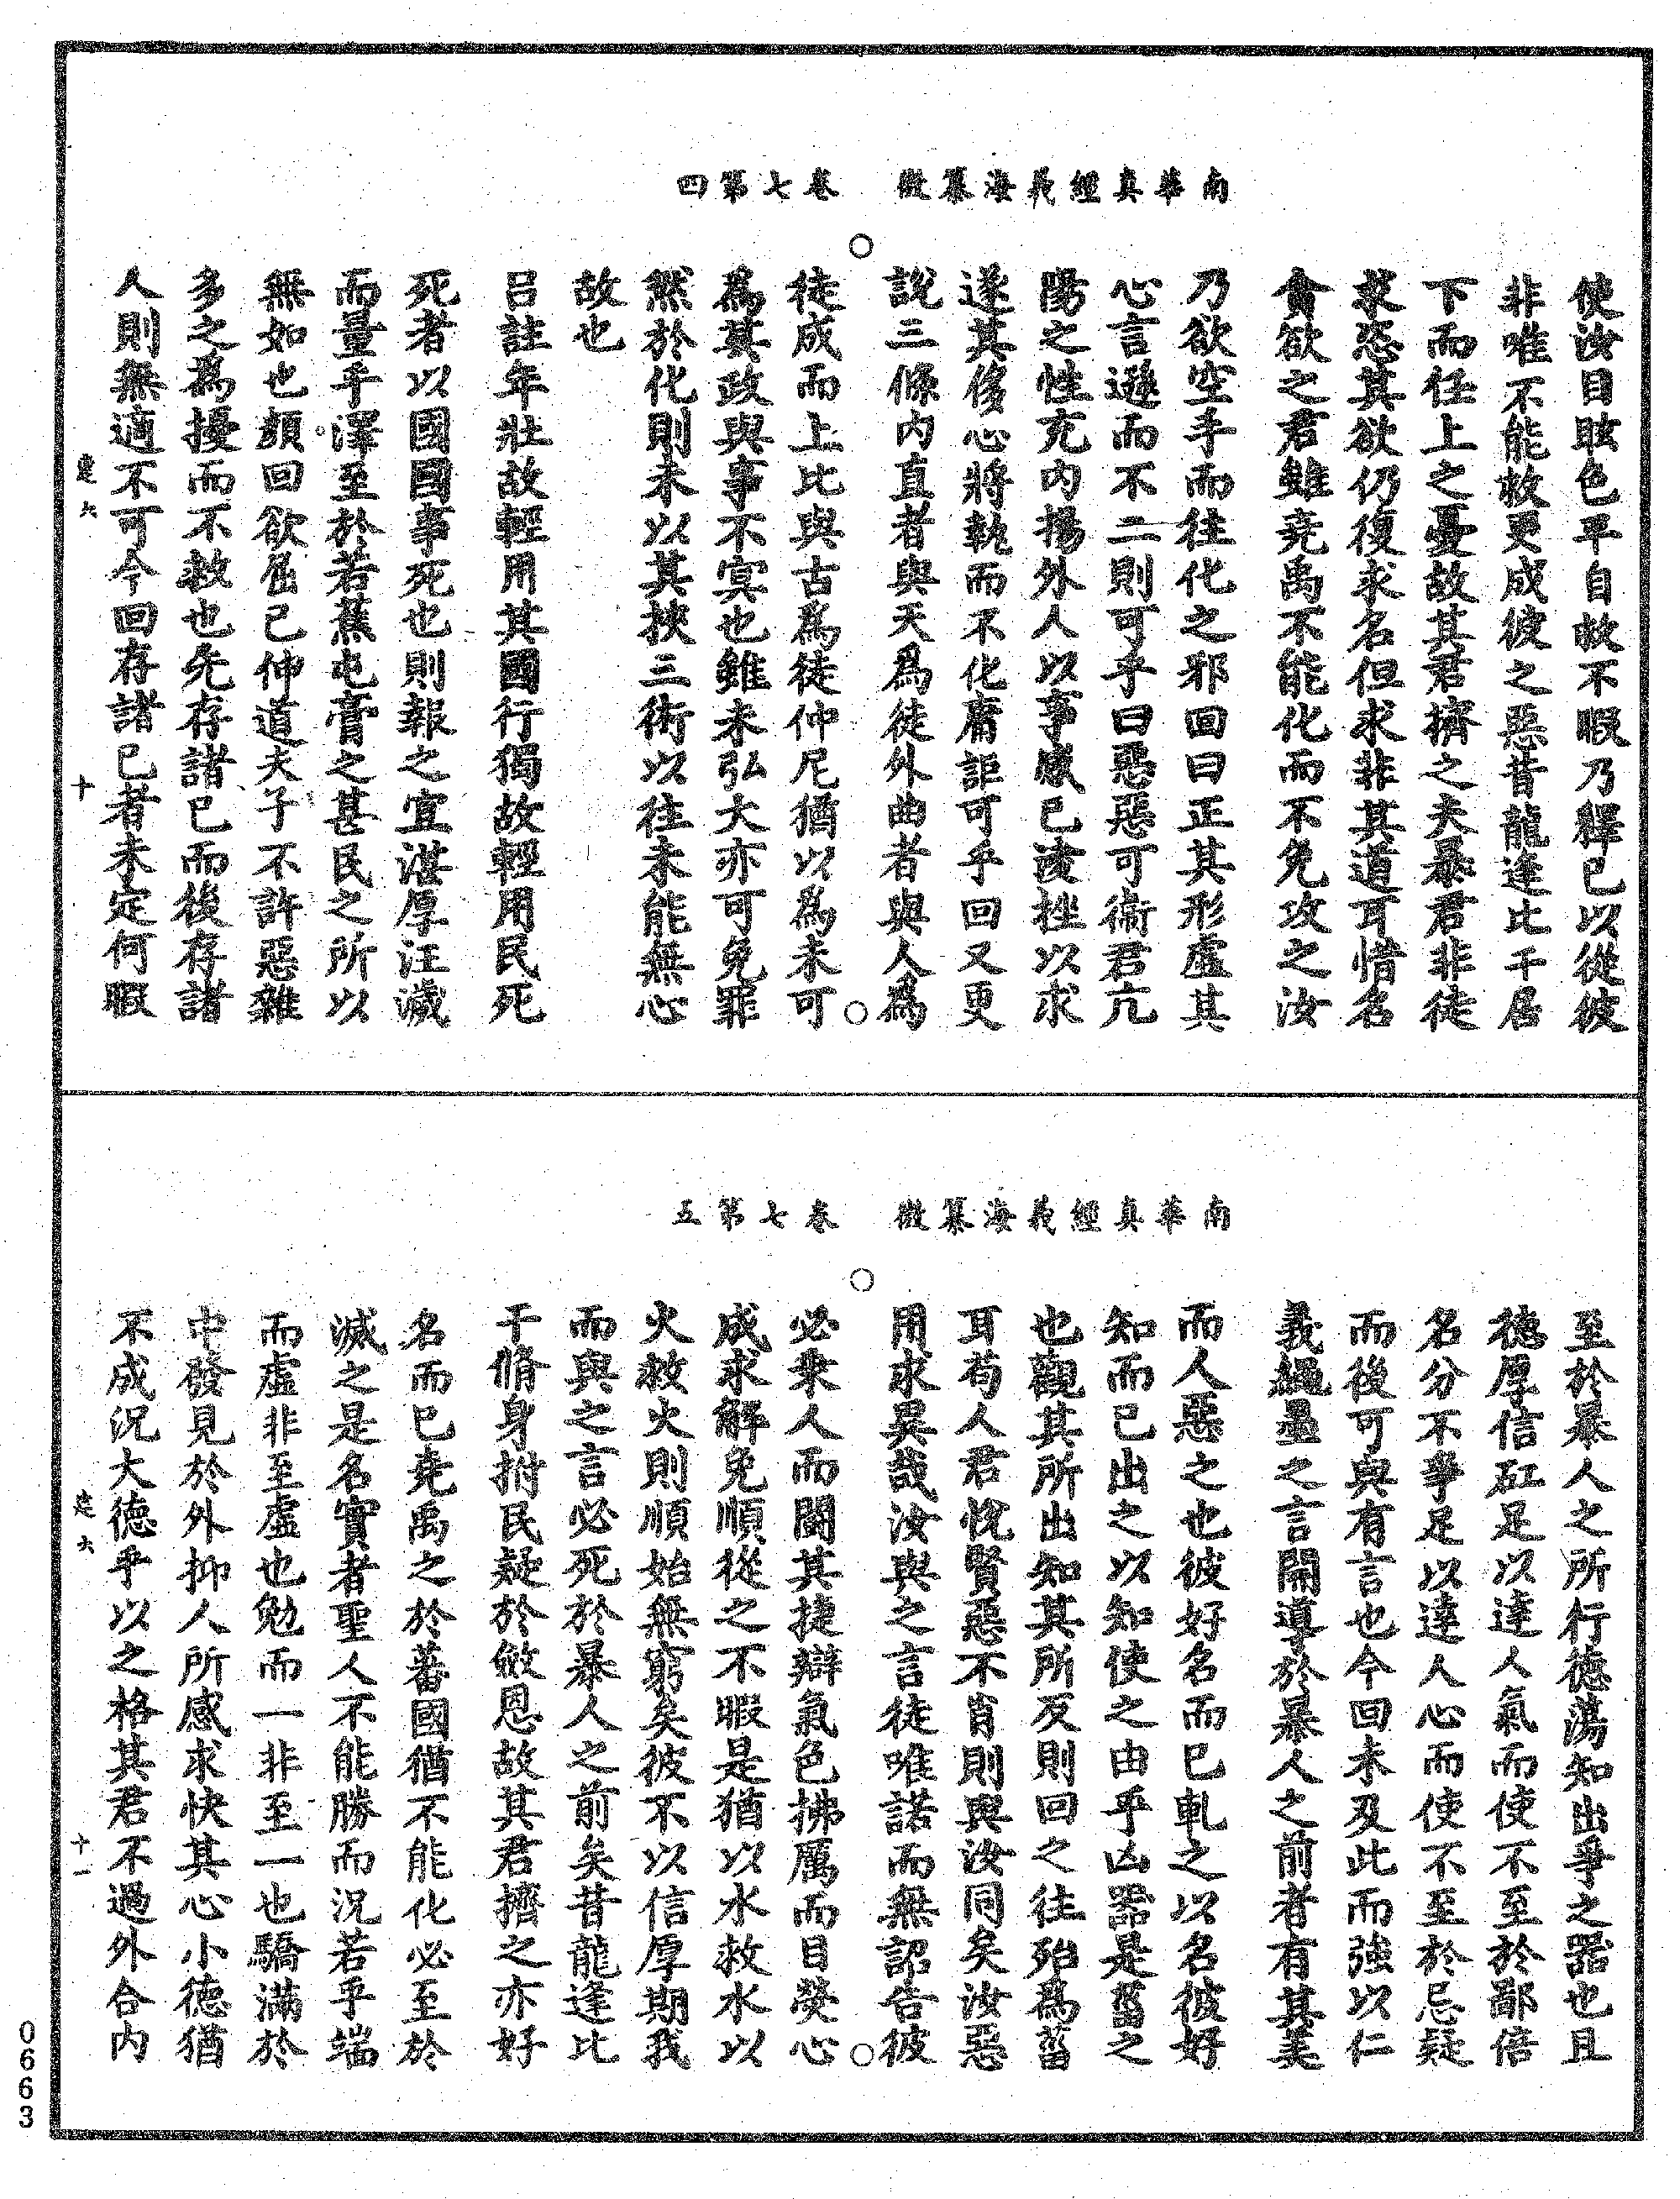 南華真經義海纂微　卷七第四
使汝目眩色平自救不暇乃釋已以從彼
非唯不能救更成彼之惡昔龍逢比干居
下而任上之憂故其君擠之夫暴君非徒
求恣其欲仍復求名但求非其道耳惜名
貪欲之君雖堯禹不能化而不免攻之汝
乃欲空手而往化之邪回曰正其形虛其
心言遜而不二則可乎曰惡惡可衞君亢
陽之性充內揚外人以事感已陵挫以求
遂其侈心將執而不化庸詎可乎回又更
說三條內直者與天為徒外曲者與人為
徒成而上比與古為徒仲尼猶以為未可
為其政與事不冥也雖未弘大亦可免罪
然於化則未以其挾三術以往未能無心
故也
呂註年壯故輕用其國行獨故輕用民死
死者以國國事死也則報之宜湛厚汪濊
而量乎澤至於若蕉屯膏之甚民之所以
無如也顏回欲屈已伸道夫子不許惡雜
多之為擾而不救也先存諸已而後存諸
人則無適不可今回存諸已者未定何暇
十
南華真經義海纂微　卷七第五
至於暴人之所行德蕩知出爭之器也且
德厚信矼足以達人氣而使不至於鄙倍
名分不爭足以達人心而使不至於忌疑
而後可與有言也今回未及此而強以仁
義繩墨之言開導於暴人之前者有其美
而人惡之也彼好名而已軋之以名彼好
知而已出之以知使之由乎凶器是菑之
也觀其所出知其所反則回之往殆為菑
耳苟人君悅賢惡不肖則與汝同矣汝惡
用求異哉汝與之言徒唯諾而無詔告彼
必乘人而鬪其捷辯氣色拂厲而目熒心
成求解免順從之不暇是猶以水救水以
火救火則順始無窮矣彼不以信厚期我
而與之言必死於暴人之前矣昔龍逢比
干脩身拊民疑於斂恩故其君擠之亦好
名而已堯禹之於蕃國猶不能化必至於
滅之是名實者聖人不能勝而況若乎端
而虛非至虛也勉而一非至一也驕滿於
中發見於外抑人所感求快其心小德猶
不成況大德乎以之格其君不過外合內
十一
0663